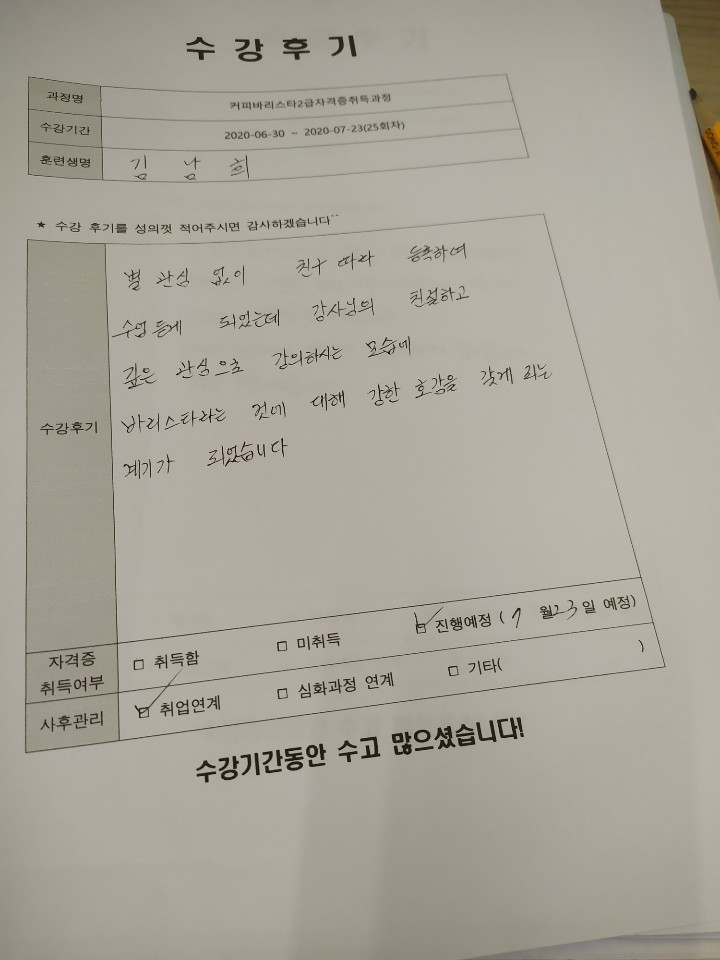 수 강 후 기
과정명 커피바리스타2급자격증취득과정
수강기간 2020-06-30 ~ 2020-07-23(25회차)
훈련생명 김 남 희
★ 수강 후기를 성의껏 적어주시면 감사하겠습니다^^
수강후기
별 관심 없이 친구 따라 등록하여
수업 듣게 되었는데 강사님의 친절하고
깊은 관심으로 강의하시는 모습에
바리스타라는 것에 대해 강한 호감을 갖게 되는
계기가 되었습니다
자격증 취득여부 □ 취득함 □ 미취득 ☑ 진행예정 ( 7 월 23 일 예정)
사후관리 ☑ 취업연계 □ 심화과정 연계 □ 기타( )
수강기간동안 수고 많으셨습니다!